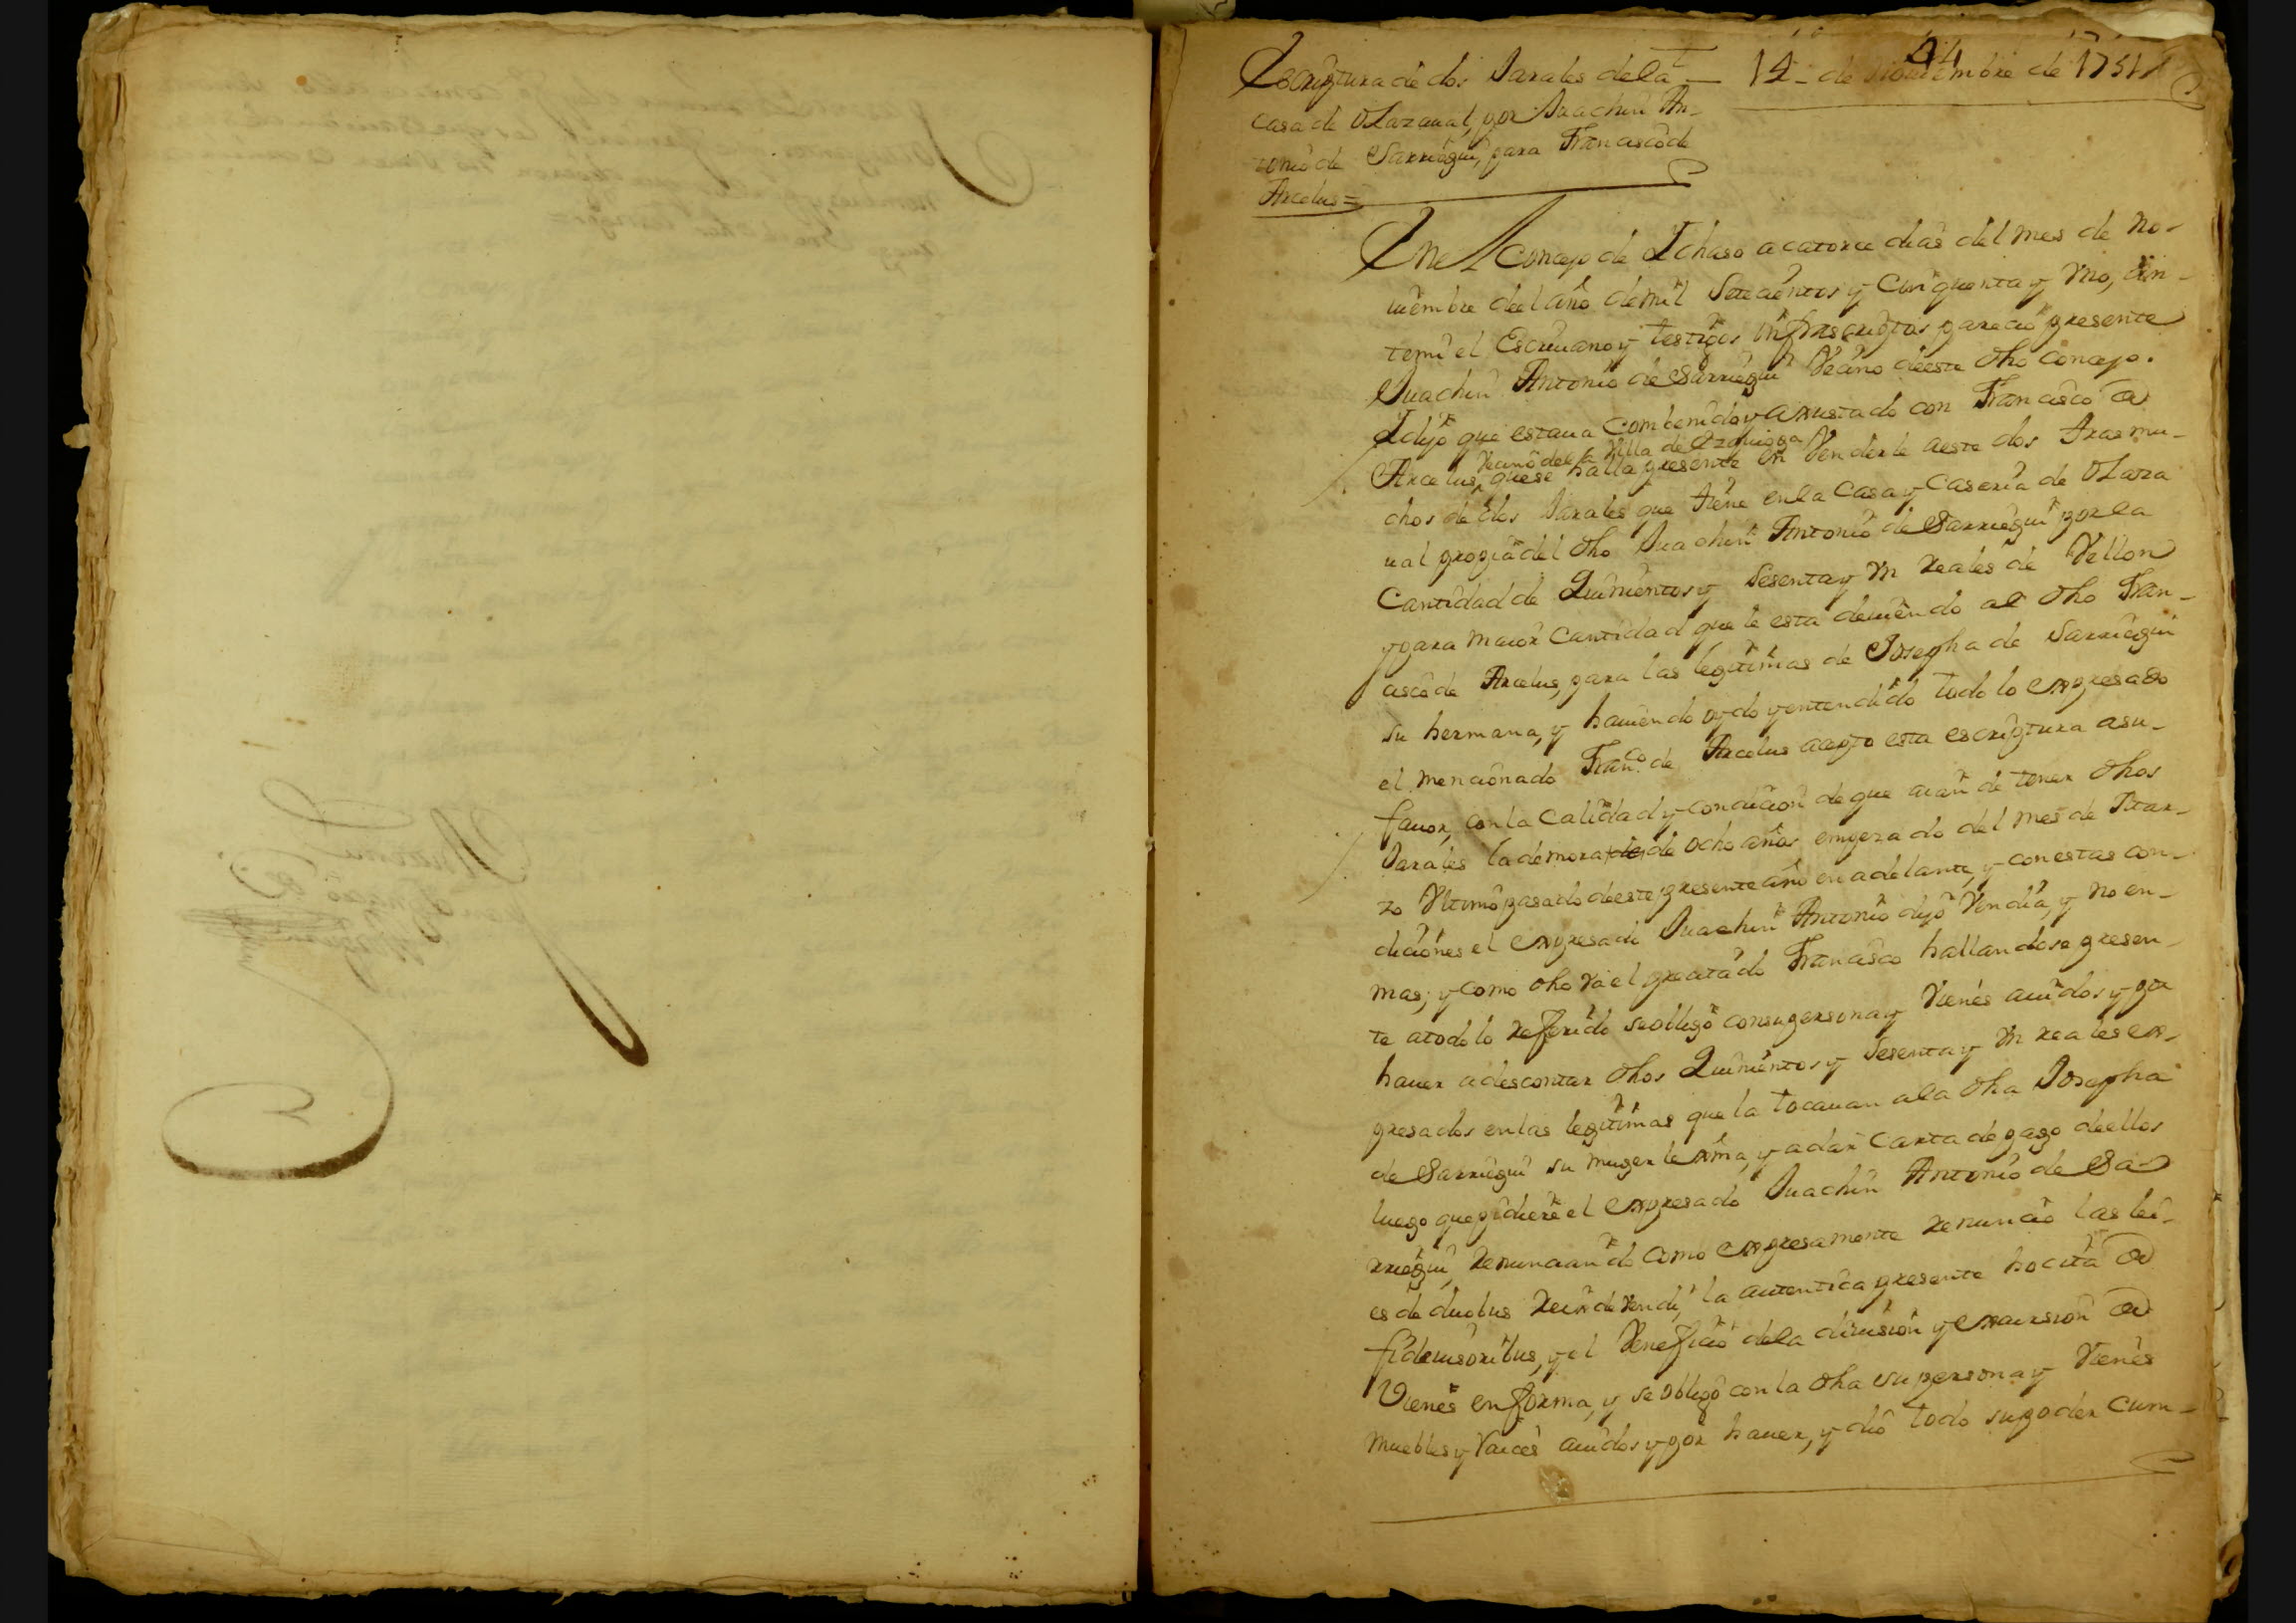 44
Escriptura de dos Jarales de la
casa de Olazaual, por Juachin An-
tonio de Sarriegui, para Francisco de
Arcelus =
14 - de Nouiembre de 1751
En el Concejo de Ichaso a catorce dias del mes de No-
uiembre de el año de mil Setecientos y Cinquenta y Vno, an-
temi el Escriuano y testigos infrascriptos parecio presente
Juachin Antonio de Sarriegui Vecino de este dho Concejo.
I dijo que estaua combenido y axustado con Francisco de
Vecino de la Villa de Ezquioga
Arcelus, que se halla presente en Venderle a este dos trasmu-
chos de dos Jarales que tiene en la Casa y Caseria de Olaza
ual propia del dho Juachin Antonio de Sarriegui por la
Cantidad de Quinientos y Sesenta y Vn reales de Vellon
y para maior Cantidad que le esta deuiendo al dho Fran-
cisco de Arcelus, para las legitimas de Josepha de Sarriegui
su hermana, y hauiendo oydo y entendido todo lo expresado
el mencionado Franco. de Arcelus acepto esta escriptura a su-
fauor, con la Calidad y condicion de que aian de tener dhos
Jarales la demora de de ocho años empezado del mes de Mar-
zo Vltimo pasado de este presente año en adelante, y con estas con-
diciones el expresado Juachin Antonio dijo Vendia, y no en-
mas; y como dho va el precitado Francisco hallandose presen-
te a todo lo referido se obligo con su persona y Vienes auidos y por
hauer a descontar dhos Quinientos y Sesenta y Vn reales ex-
presados en las legitimas que la tocauan a la dha Josepha
de Sarriegui su muger lexma, y a dar Carta de pago de ellos
luego que pidiere el expresado Juachin Antonio de Sa
rriegui, renunciando como expresamente renuncio las lei-
es de duobus rex de vendi, la autentica presente hocita de
fideiusoribus, y el Veneficio de la diuision y excursion de
Vienes en forma, y se obligo con la dha su persona y Vienes
muebles y raices auidos y por hauer, y dio todo su poder cum-